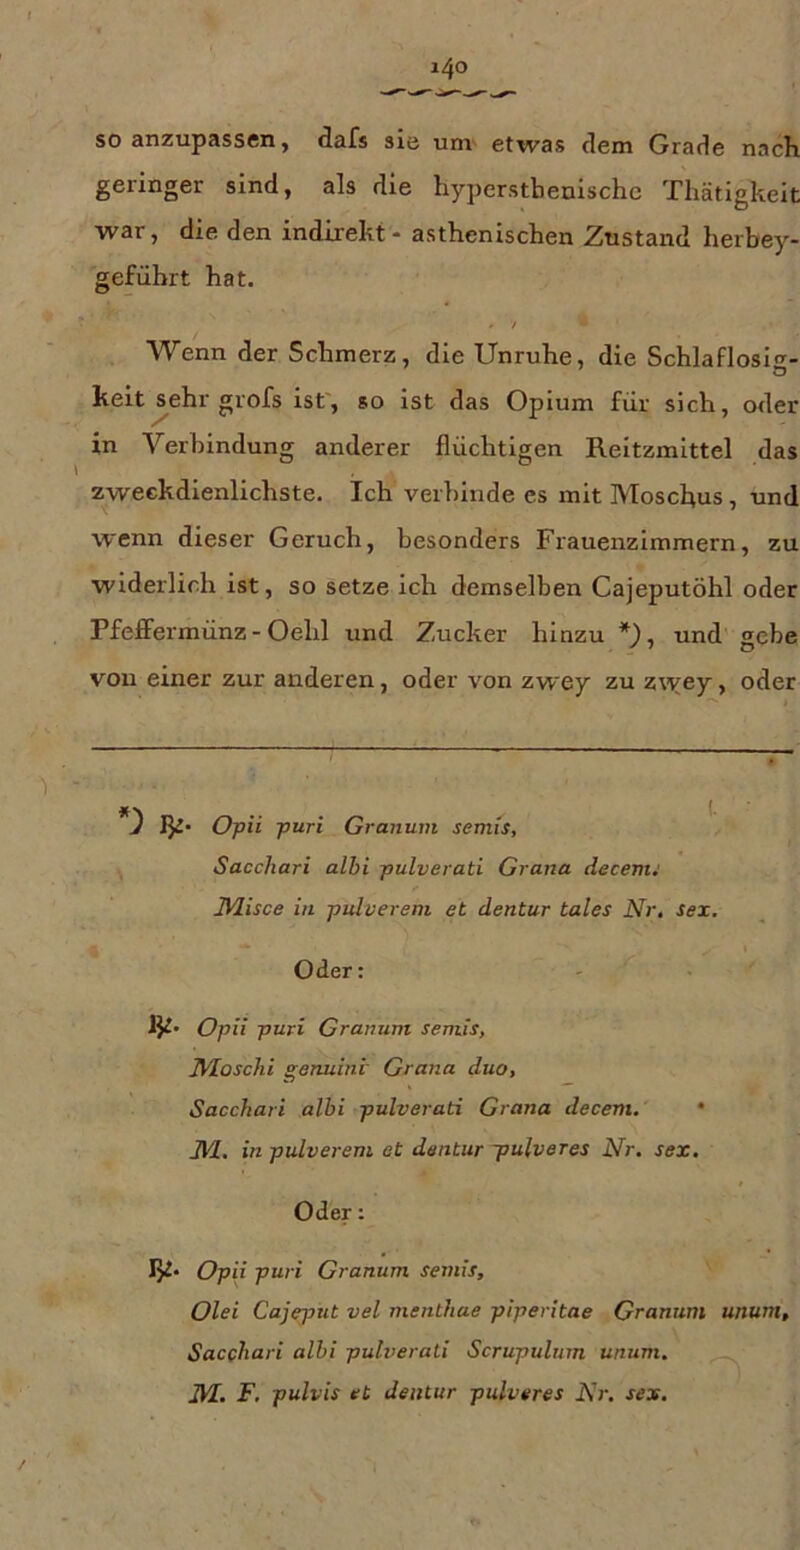 140
so anzupassen, dafs sie um etwas dem Grade nach
geringer sind, als die hypersthenische Thätigkeit
war, die den indirekt- asthenischen Zustand herbey-
geführt hat.
Wenn der Schmerz, die Unruhe, die Schlaflosig-
keit sehr grofs ist, so ist das Opium für sich, oder
in Verbindung anderer flüchtigen Reitzmittel das
zweckdienlichste. Ich verbinde es mit Moschus, und
wenn dieser Geruch, besonders Frauenzimmern, zu
widerlich ist, so setze ich demselben Cajeputöhl oder
Pfeffermünz-Oehl und Zucker hinzu *), und gebe
von einer zur anderen, oder von zwey zu zwey, oder
*) ℞. Opii puri Granum semis,
Sacchari albi pulverati Grana decem.
Misce in pulverem et dentur tales Nr. sex.
Oder:
℞. Opii puri Granum semis,
Moschi genuini Grana duo,
Sacchari albi pulverati Grana decem.
M. in pulverem et dentur pulveres Nr. sex.
Oder:
℞. Opii puri Granum semis,
Olei Cajeput vel menthae piperitae Granum unum,
Sacchari albi pulverati Scrupulum unum.
M. F. pulvis et dentur pulveres Nr. sex.